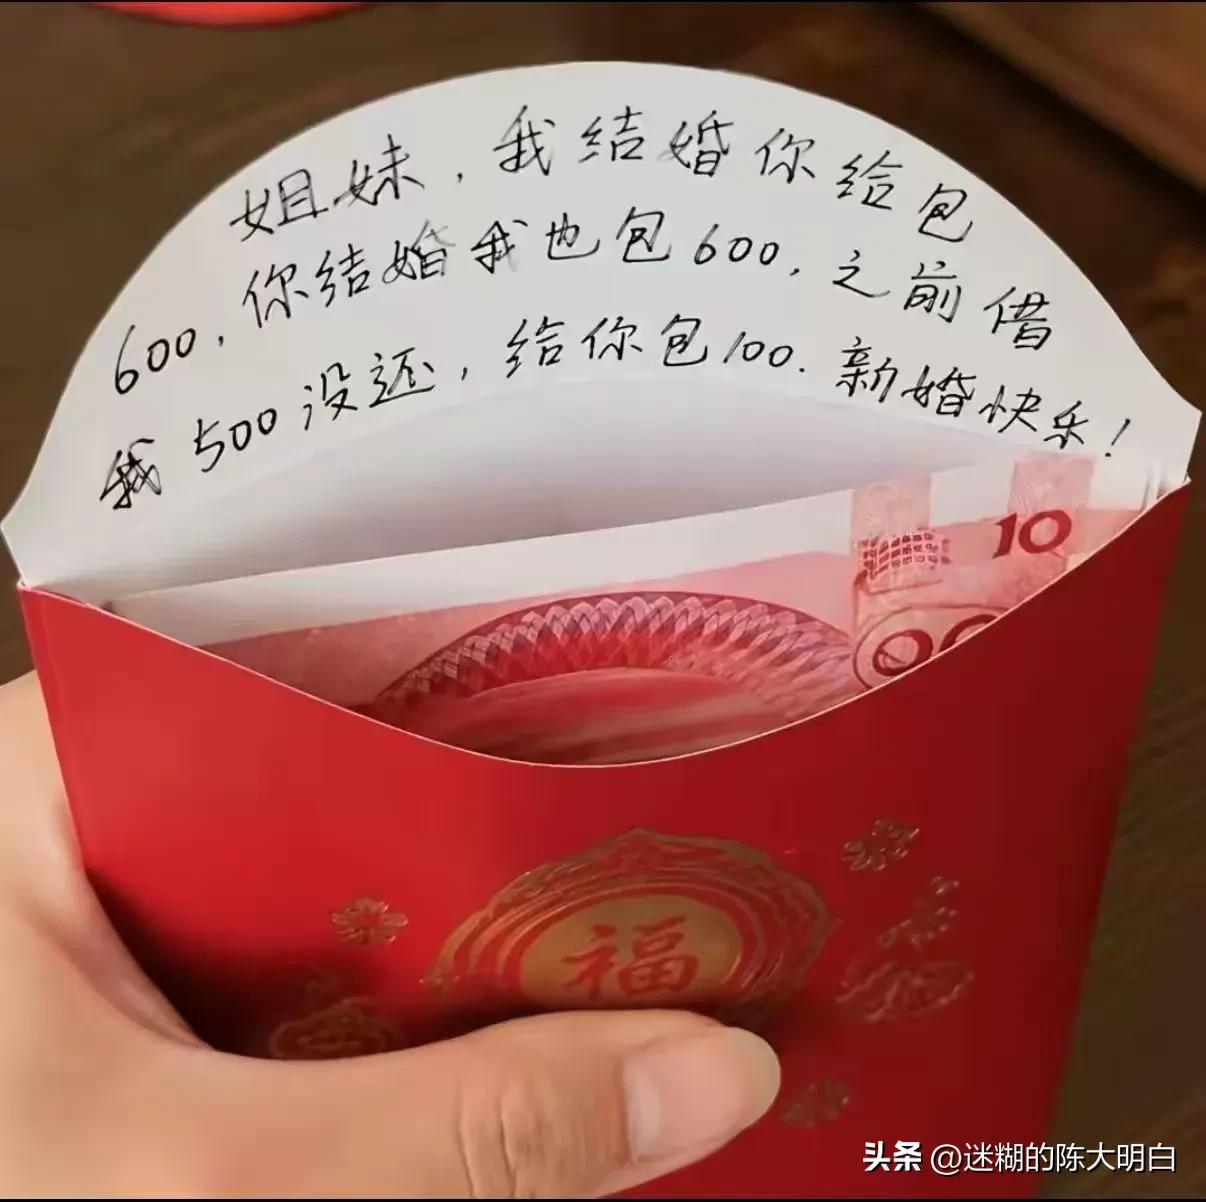 姐妹，我结婚你给包
600，你结婚我也包600，之前借
我500没还，给你包100.新婚快乐！
10
00
福
头条 @迷糊的陈大明白